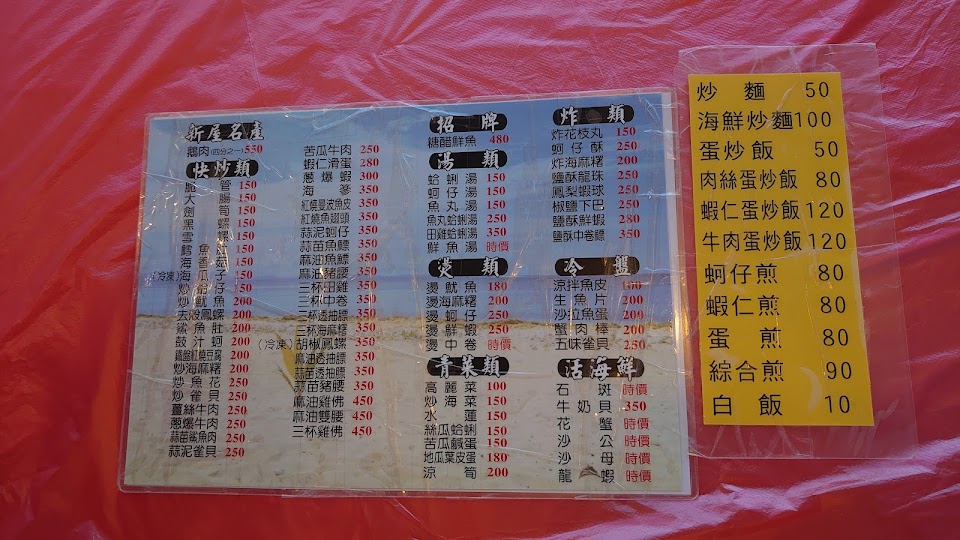 新屋名產
鵝肉(四分之一)550
快炒類
脆管 150
大腸 150
劍筍 150
黑 螺 150
雪螺 150
鱈魚
海香
海瓜子
(冷凍)
去骨魷魚 200
炒 鳳螺 200
鯊魚肚 200
鼓汁蚵 200
鐵盤紅燒豆腐 200
炒海麻糬 200
炒魚花 250
炒雀貝 250
薑絲牛肉 250
蔥爆牛肉 250
蒜苗鯊魚肉 250
蒜泥雀貝 250
苦瓜牛肉 250
蝦仁滑蛋 280
蔥爆蝦 300
海參 350
紅燒曼波魚皮 350
紅燒魚翅頭 350
蒜泥蚵仔 350
蒜苗魚鰾 350
麻油魚鰾 350
麻油豬腰 350
三杯田雞 350
三杯中卷 350
三杯透抽鰾 350
三杯海麻糬 350
(冷凍)胡椒鳳螺 350
麻油透抽鰾 350
蒜苗透抽鰾 350
蒜苗豬腰 350
麻油雞佛 450
麻油雙腰 450
三杯雞佛 450
招牌
糖醋鮮魚 480
湯類
蛤蜊湯 150
蚵仔湯 150
魚丸湯 150
魚丸蛤蜊湯 250
田雞蛤蜊湯 350
鮮魚湯 時價
燙類
燙魷魚 180
燙海麻糬 200
燙蚵仔 250
燙鮮蝦 250
燙中卷 時價
青菜類
高麗菜 100
炒海菜 150
水蓮 150
絲瓜蛤蜊 150
苦瓜鹹蛋 150
地瓜葉皮蛋 180
涼筍 200
炸類
炸花枝丸 150
蚵仔酥 250
炸海麻糬 200
鹽酥龍珠 250
鳳梨蝦球 250
椒鹽下巴 250
鹽酥鮮蝦 280
鹽酥中卷鰾 350
冷盤
涼拌魚皮 100
生魚片 200
沙拉魚蛋 200
蟹肉棒 200
五味雀貝 250
活海鮮
石斑 時價
牛奶貝 350
花蟹 時價
沙公 時價
沙母 時價
龍蝦 時價
炒麵 50
海鮮炒麵100
蛋炒飯 50
肉絲蛋炒飯 80
蝦仁蛋炒飯120
牛肉蛋炒飯120
蚵仔煎 80
蝦仁煎 80
蛋煎 80
綜合煎 90
白飯 10